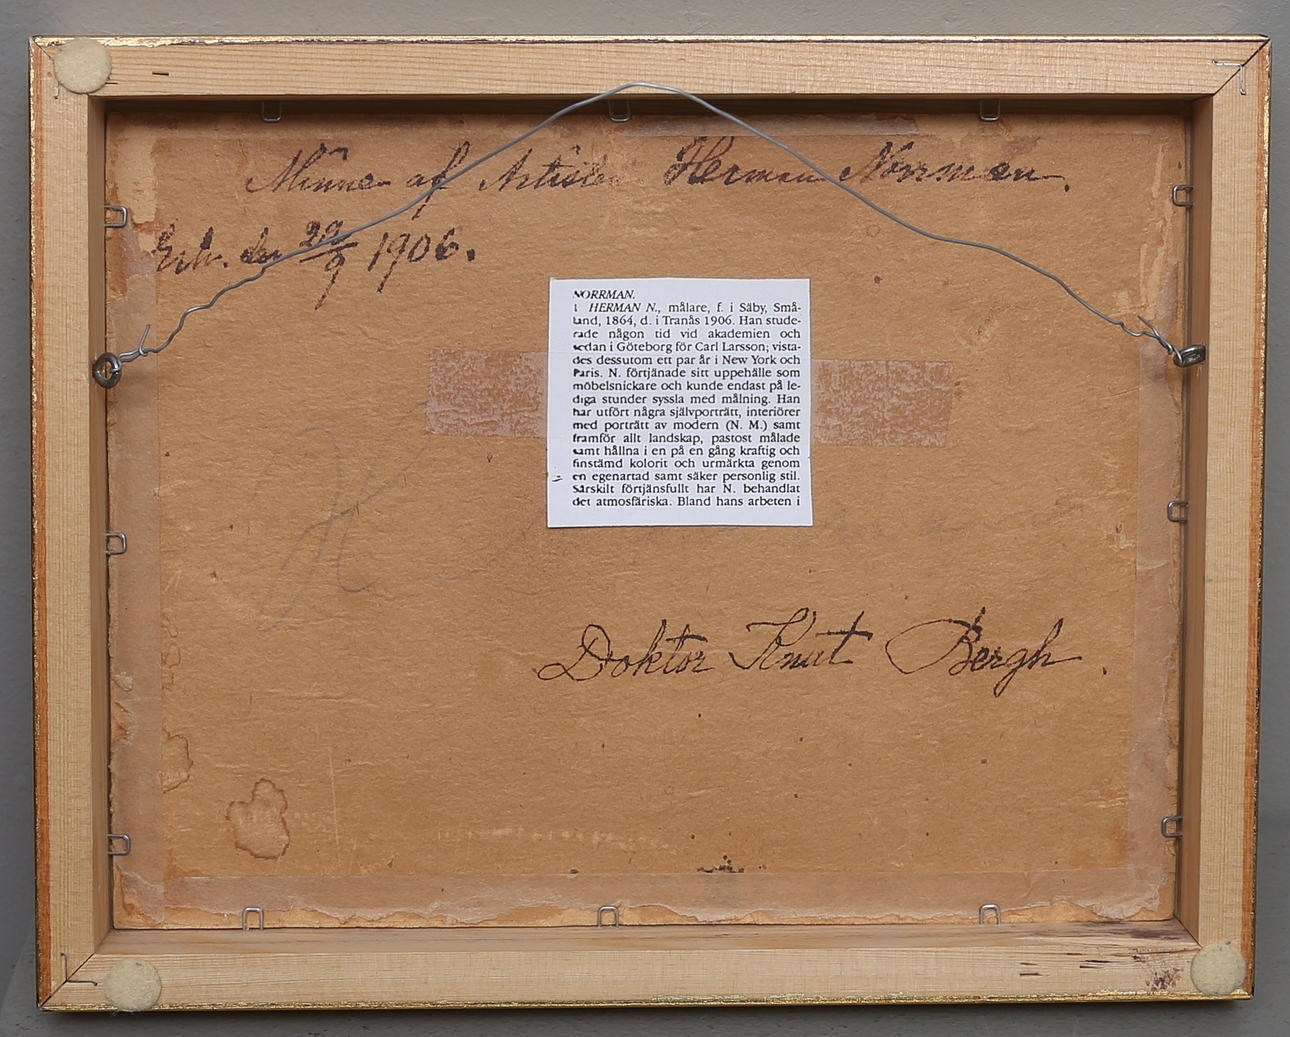 Minne af Artisten Herman Norrman.
Erh. den 29/9 1906.
NORRMAN.
1 HERMAN N., målare, f. i Säby, Små-
land, 1864, d. i Tranås 1906. Han stude-
rade någon tid vid akademien och
sedan i Göteborg för Carl Larsson; vista-
des dessutom ett par år i New York och
Paris. N. förtjänade sitt uppehälle som
möbelsnickare och kunde endast på le-
diga stunder syssla med målning. Han
har utfört några självporträtt, interiörer
med porträtt av modern (N. M.) samt
framför allt landskap, pastost målade
samt hållna i en på en gång kraftig och
finstämd kolorit och utmärkta genom
en egenartad samt säker personlig stil.
Särskilt förtjänsfullt har N. behandlat
det atmosfäriska. Bland hans arbeten i
Doktor Knut Bergh.